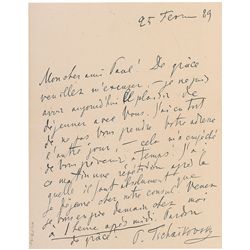 25 Février 89
Mon cher ami Paul! De grâce
veuillez m'excuser; je ne puis
avoir aujourd'hui le plaisir de
déjeuner avec Vous. J'ai eu tort
de ne pas Vous prendre Votre adresse
l'autre jour; – cela m'a empêché
de Vous prévenir à temps! J'ai
ce matin une répétition après la
quelle il faut absolument que
je déjeune chez notre consul. Venez
demain chez moi
à l'heure après midi. Pardon
de grâce! P. Tschaïkovsky